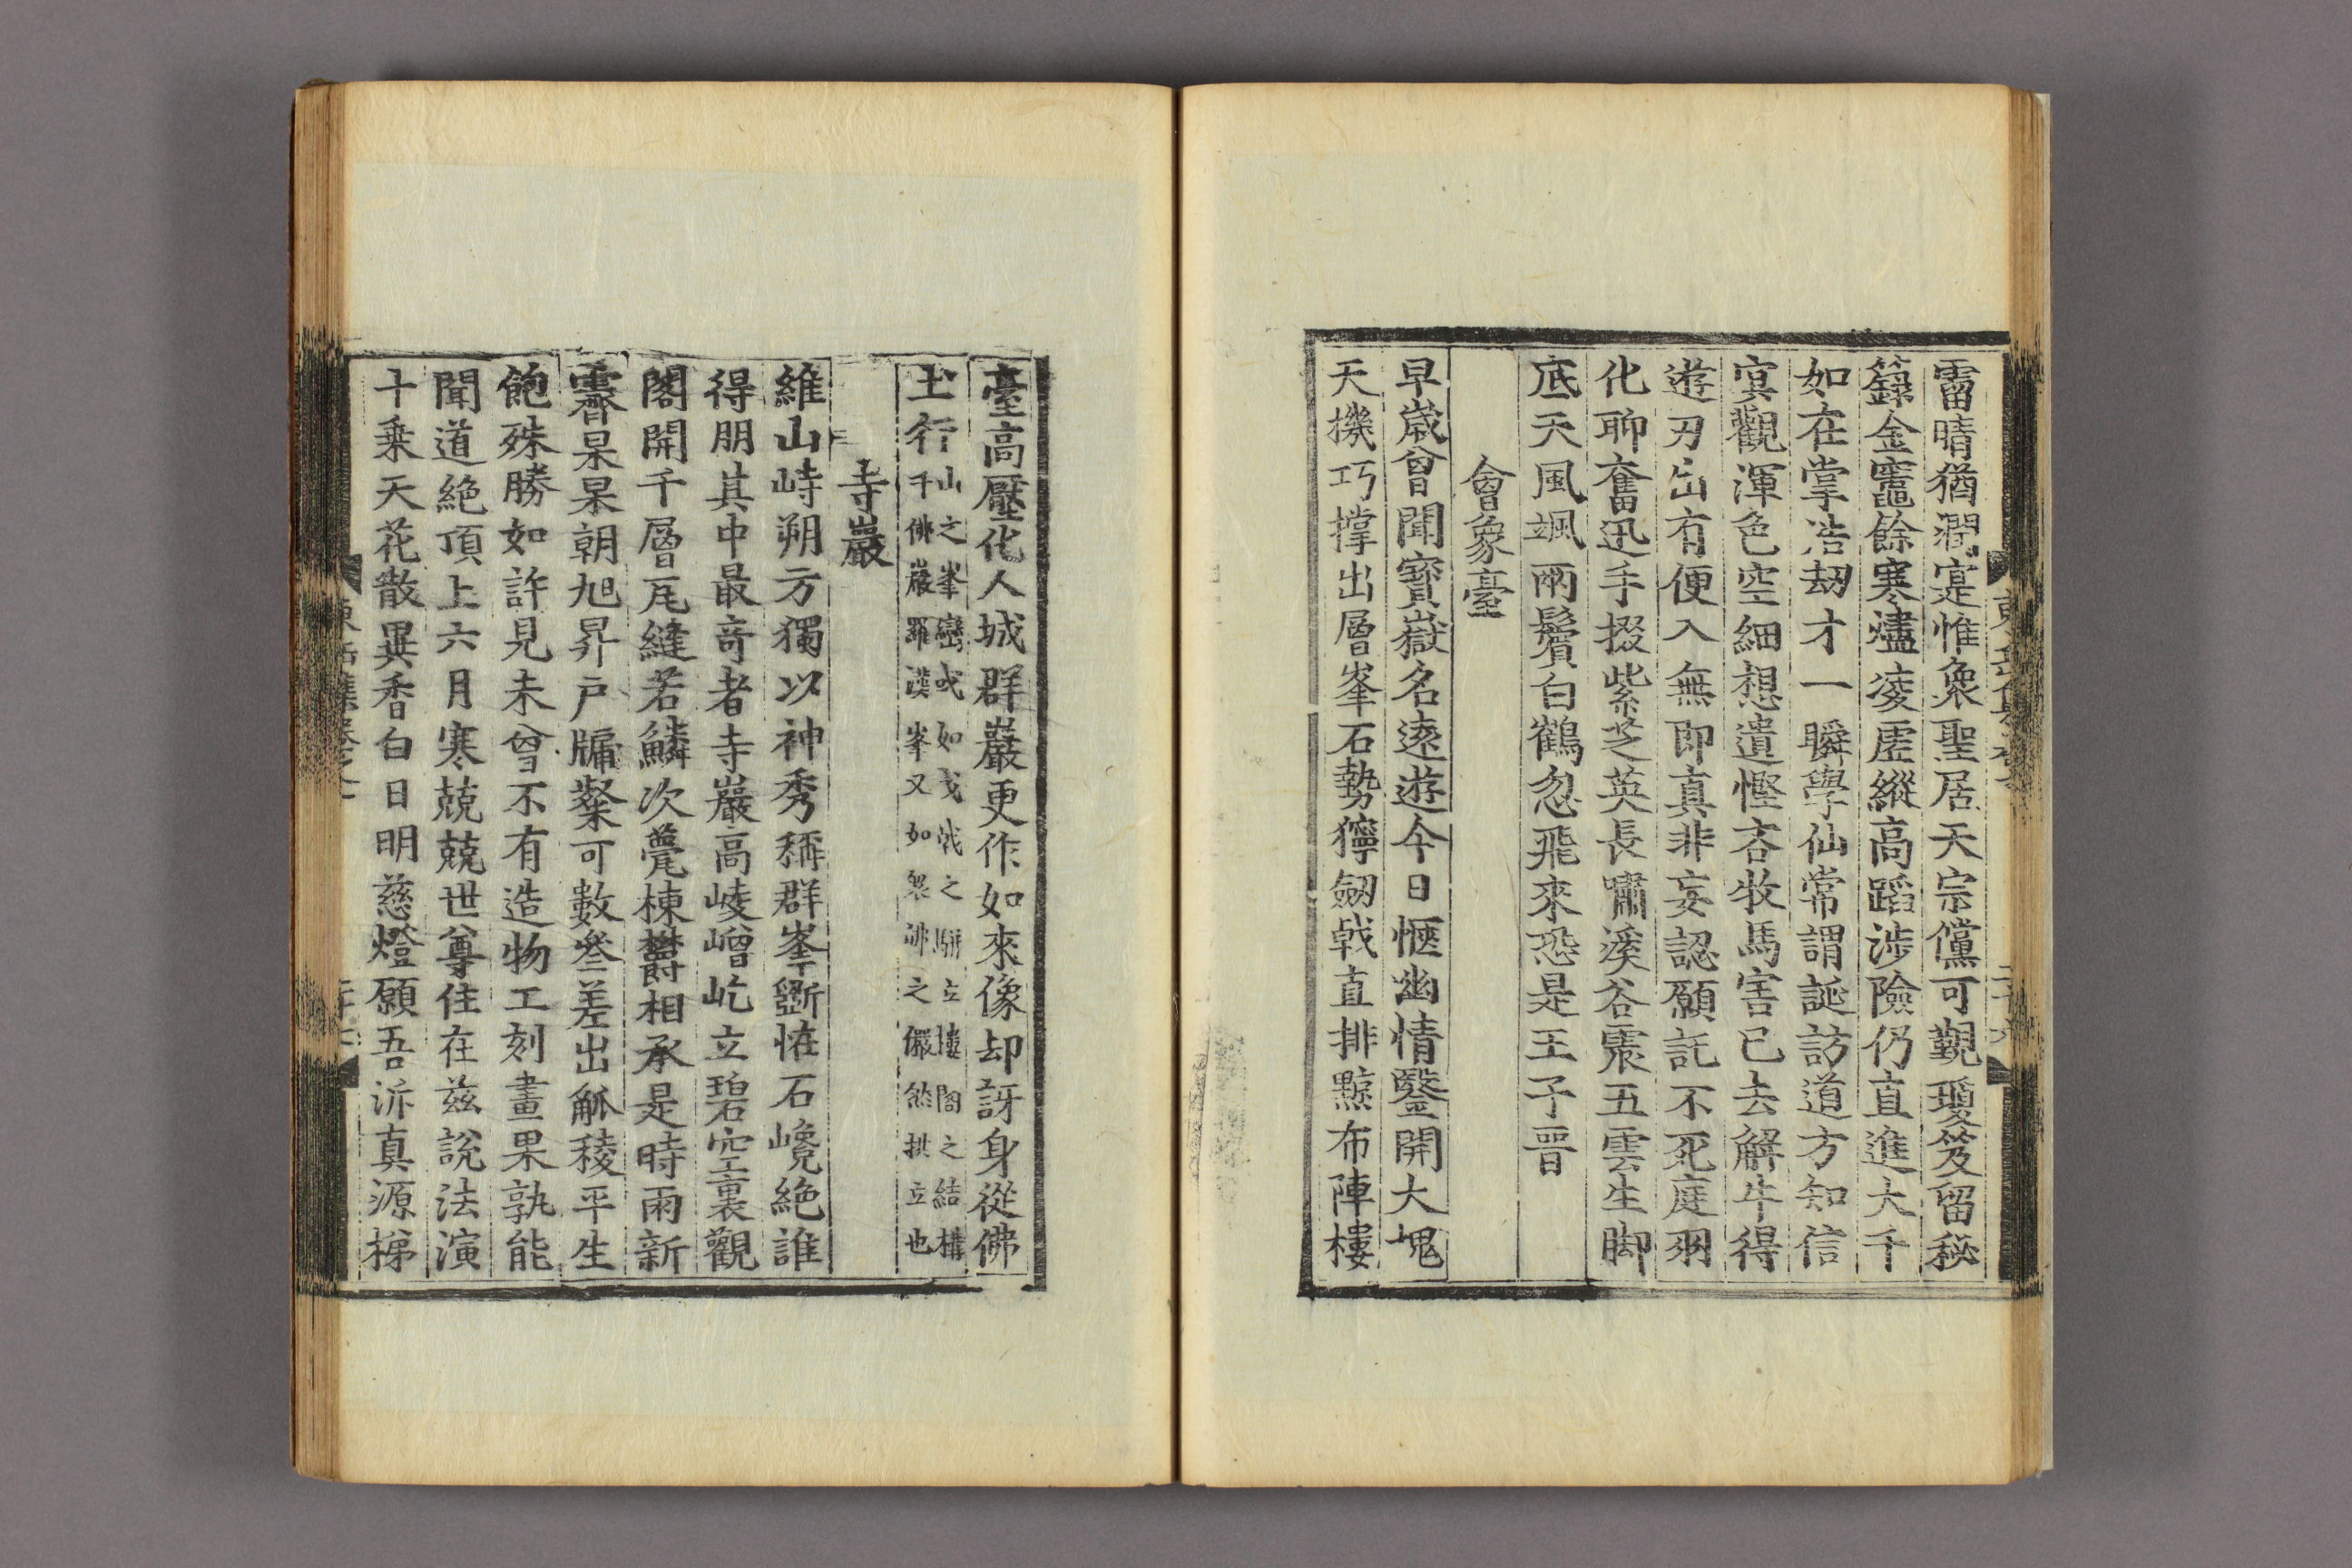 霤晴猶潤寔惟衆聖居天宗儻可覲瓊笈留秘
籙金竈餘寒燼凌虛縱高蹈涉險仍直進大千
如在掌浩劫才一瞬學仙常謂誕訪道方知信
㝠觀渾色空細想遺慳吝牧馬害已去解牛得
遊刃出有便入無即真非妄認願託不死庭羽
化聊奮迅手掇紫芝英長嘯溪谷震五雲生脚
底天風颯兩鬢白鶴忽飛來恐是王子晉
會象臺
早歲曾聞寳嶽名遠遊今日愜幽情鑿開大塊
天機巧撑出層峯石勢獰劒戟直排㸃布陣樓
臺高壓化人城群巖更作如來像却訝身從佛
土行
山之峯巒或如戈戟之騈立樓閣之結構
千佛巖羅漢峯又如衆沸之儼然拱立也
寺巖
維山峙朔方獨以神秀稱群峯斵怪石巉絶誰
得朋其中最奇者寺巖高崚嶒屹立碧空裏觀
閣開千層瓦縫若鱗次甍棟欝相承是時雨新
霽杲杲朝旭昇戶牖粲可數叄差出觚稜平生
飽殊勝如許見未曾不有造物工刻畫果孰能
聞道絶頂上六月寒兢兢世尊住在兹說法演
十乗天花散異香白日明慈燈願吾泝真源梯